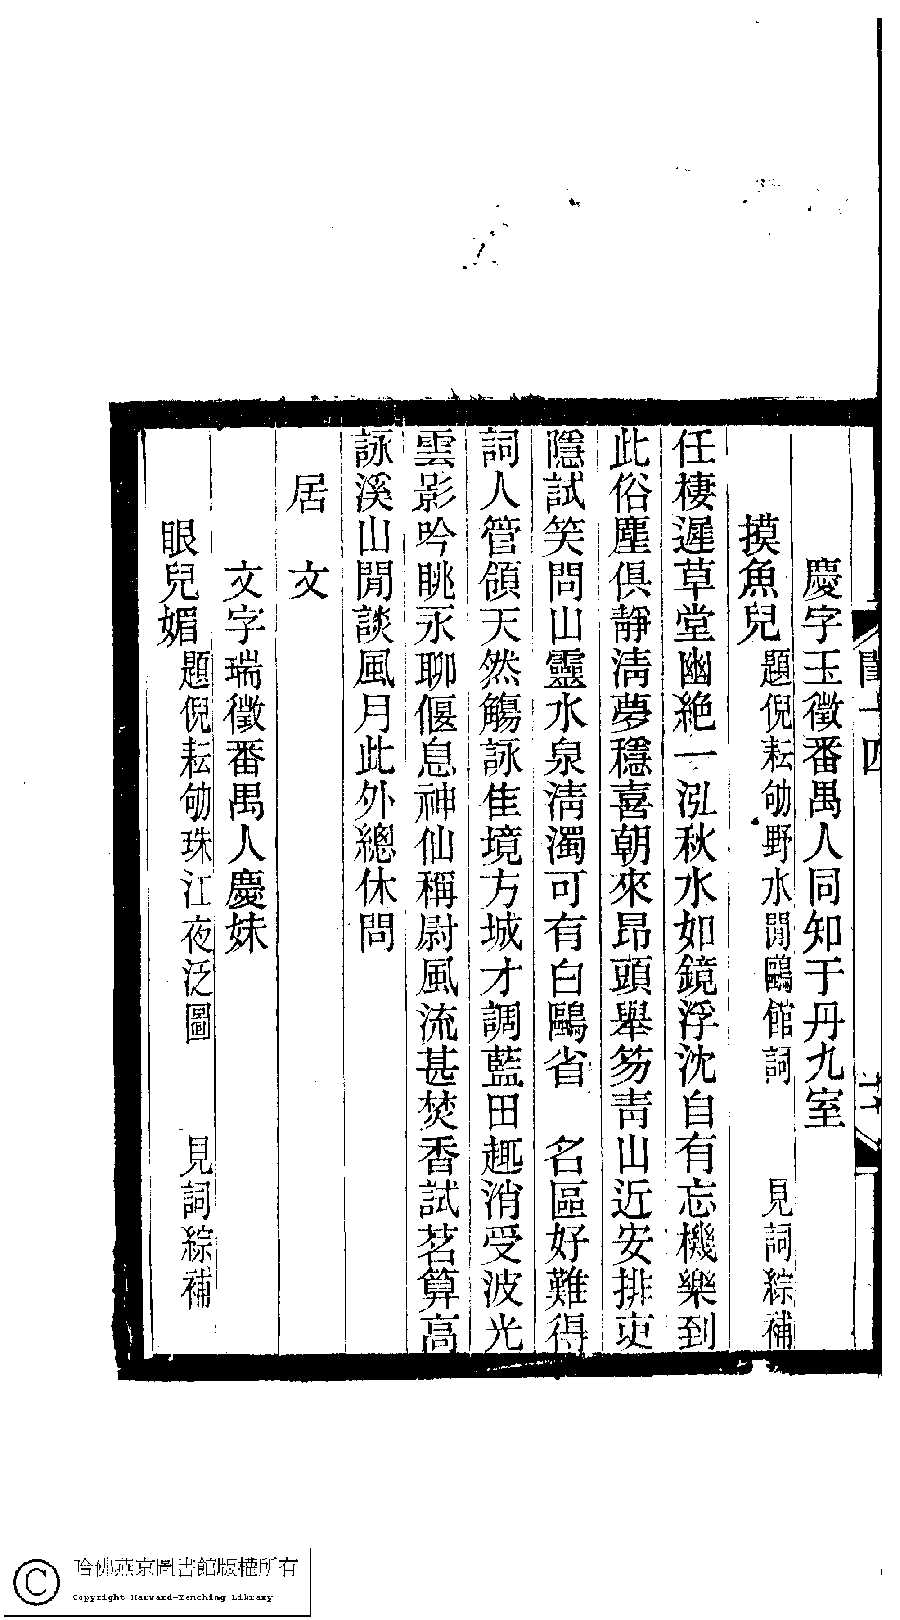 慶字玉徵番禺人同知于丹九室
摸魚兒題倪耘劬野水閒鷗館詞 見詞綜補
任棲遲草堂幽絶一泓秋水如鏡浮沈自有忘機樂到
此俗塵俱靜淸夢穩喜朝來昂頭舉笏靑山近安排吏
隱試笑問山靈水泉淸濁可有白鷗省 名區好難得
詞人管領天然觴詠隹境方城才調藍田趣消受波光
雲影吟眺永聊偃息神仙稱尉風流甚焚香試茗算高
詠溪山閒談風月此外總休問
居文
文字瑞徵番禺人慶妹
眼兒媚題倪耘劬珠江夜泛圖 見詞綜補
哈佛燕京圖書館版權所有
Copyright Harvard-Yenching Library